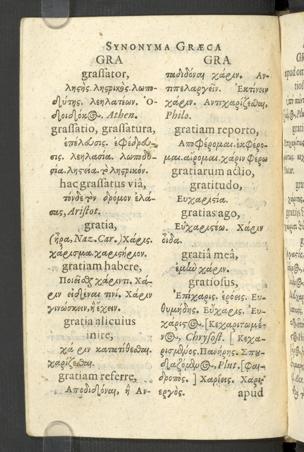 SYNONYMA GRÆCA
GRA
grassator,
ληςὴς. ληςρικὸς. λωπο-
δύτης. λεηλατέων. Ὁ-
Athen.
grassatio, grassatura,
ἐπέλασις. ἐφόδευ-
σις. λεηλασία. λωποδυ-
σία. ληςεία. τὸ ληςρικόν.
hac grassatus via,
τήνδε τὸν δρόμον ἐλά-
σας, Aristot.
gratia,
(ἦρα, Naz. Car.) Χάρις.
χάρισμα. χαριςήριον.
gratiam habere,
Χά-
ριν εἰδέναι τινί. Χάριν
γινώσκειν, ἢ ἔχειν.
gratia alicuius
inire,
χάριν κατατίθεσθαι.
χαρίζεσθαι.
gratiam referre,
Ἀποδιδόναι, ἢ Ἀν-
GRA
ταδιδόναι χάριν. Ἀν-
τιπελαργεῖν. Ἐκτίνειν
χάριν. Ἀντιχαρίζεσθαι,
Philo.
gratiam reporto,
Ἀποφέρομαι. ἐκφέρο-
μαι. αἴρομαι. χάριν φέρω
gratiarum actio,
gratitudo,
Εὐχαριςία.
gratias ago,
Εὐχαριςέω. Χάριν
οἶδα.
gratia mea,
ἐμὴν χάριν.
gratiosus,
Ἐπίχαρις. Εὐ-
Εὔχαρις. Εὐ-
[Κεχαριτωμέ-
Chrysost. [Κεχα-
ρισμένος. Σπου-
Plut. [
] Χαρίεις. Χαρι-
εργός.
apud